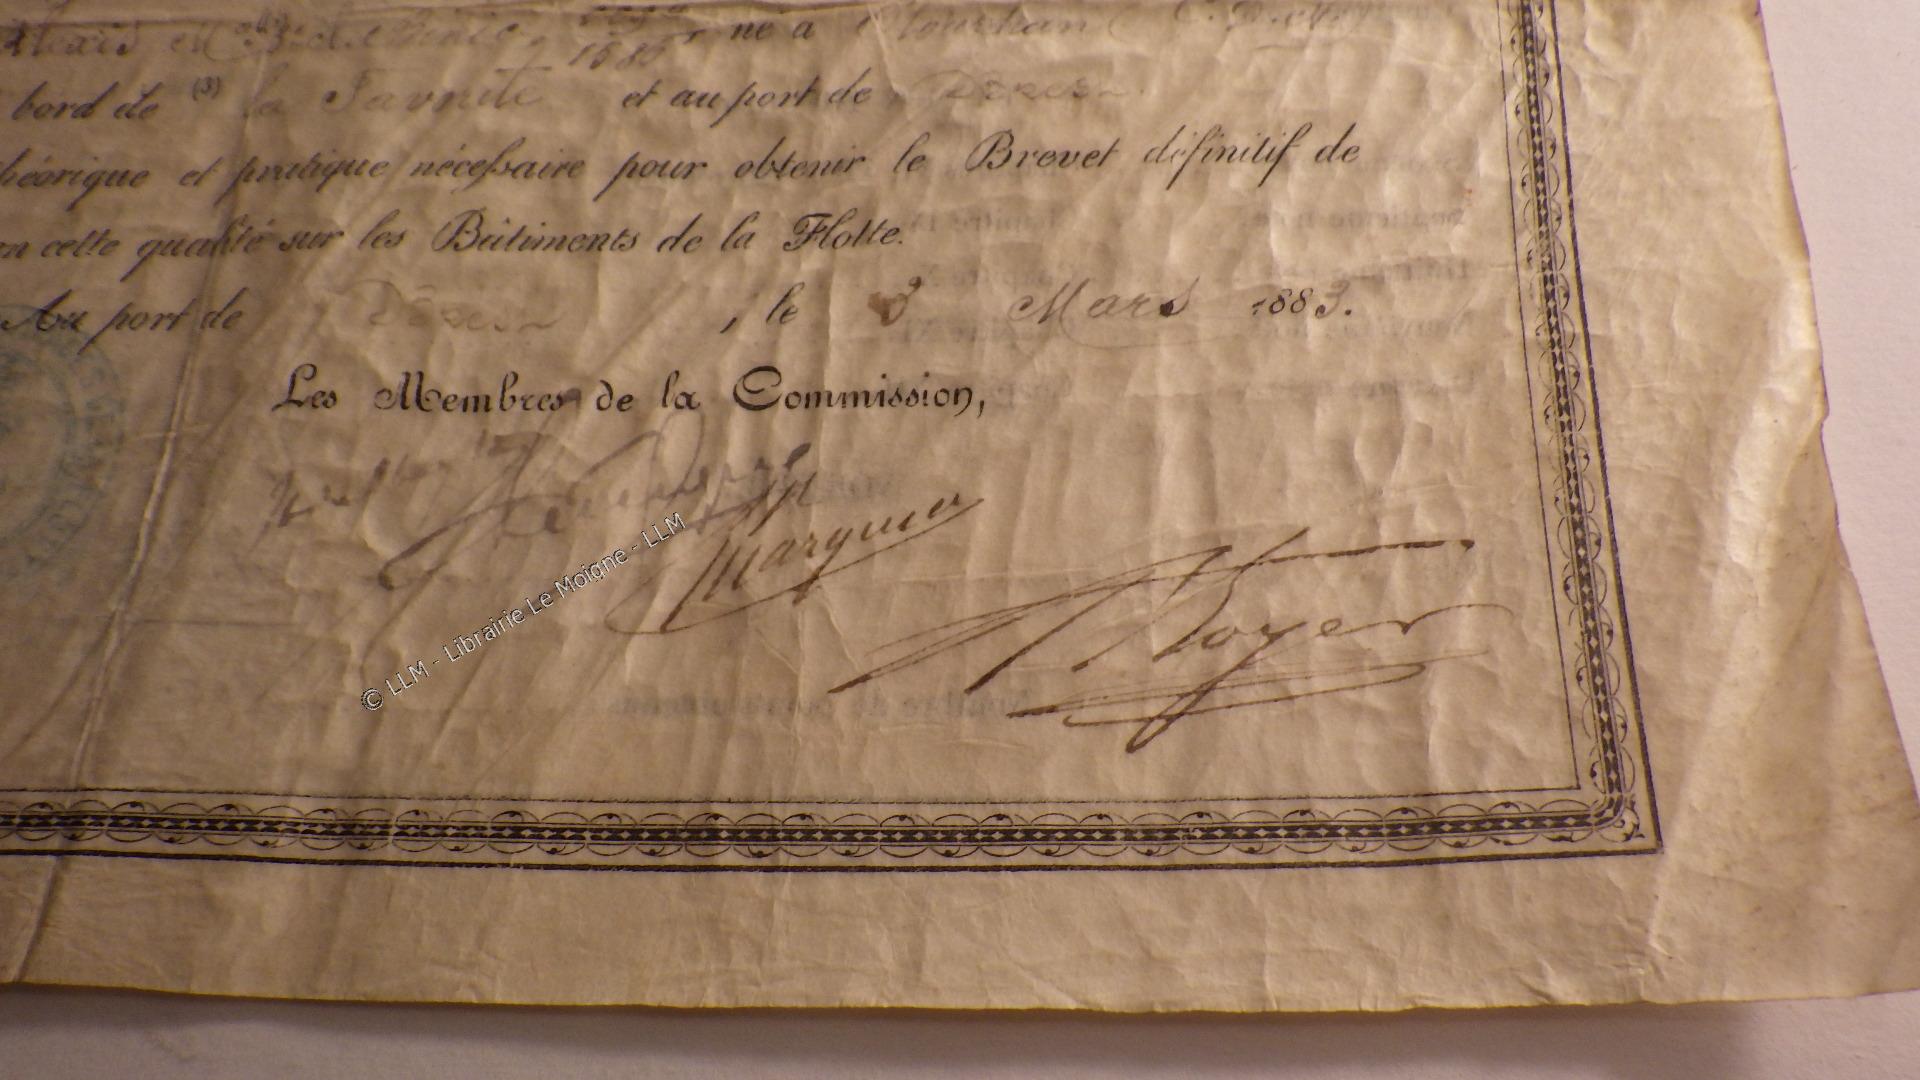 né à
bord de (3) la Favorite et au port de
théorique et pratique nécessaire pour obtenir le Brevet définitif de
en cette qualité sur les Bâtiments de la Flotte.
Au port de , le 8 Mars 1883.
Les Membres de la Commission,
Marquier
Boyer
© LLM - Librairie Le Moigne - LLM